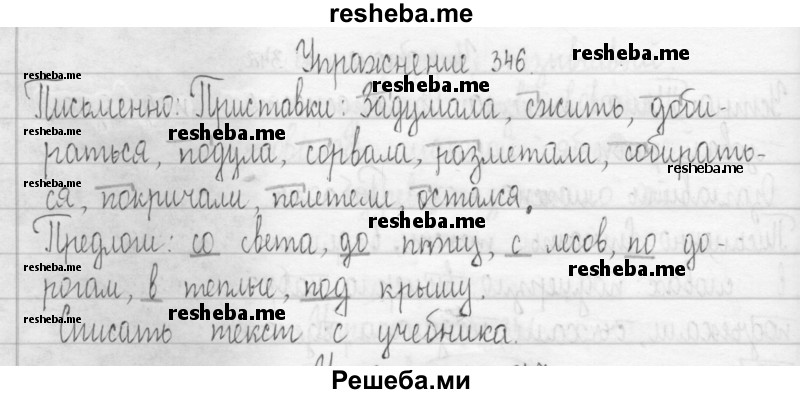 resheba.me
Упражнение 346.
resheba.me
resheba.me
Письменно: Приставки: Задумала, сжить, доби-
resheba.me
resheba.me
раться, подула, сорвала, разметала, собирать-
resheba.me
resheba.me
ся, покричали, полетели, остался.
resheba.me
Предлоги: со света, до птиц, с лесов, по до-
resheba.me
resheba.me
рогам, в теплые, под крышу.
resheba.me
resheba.me
Списать текст с учебника.
resheba.me
Решеба.ми